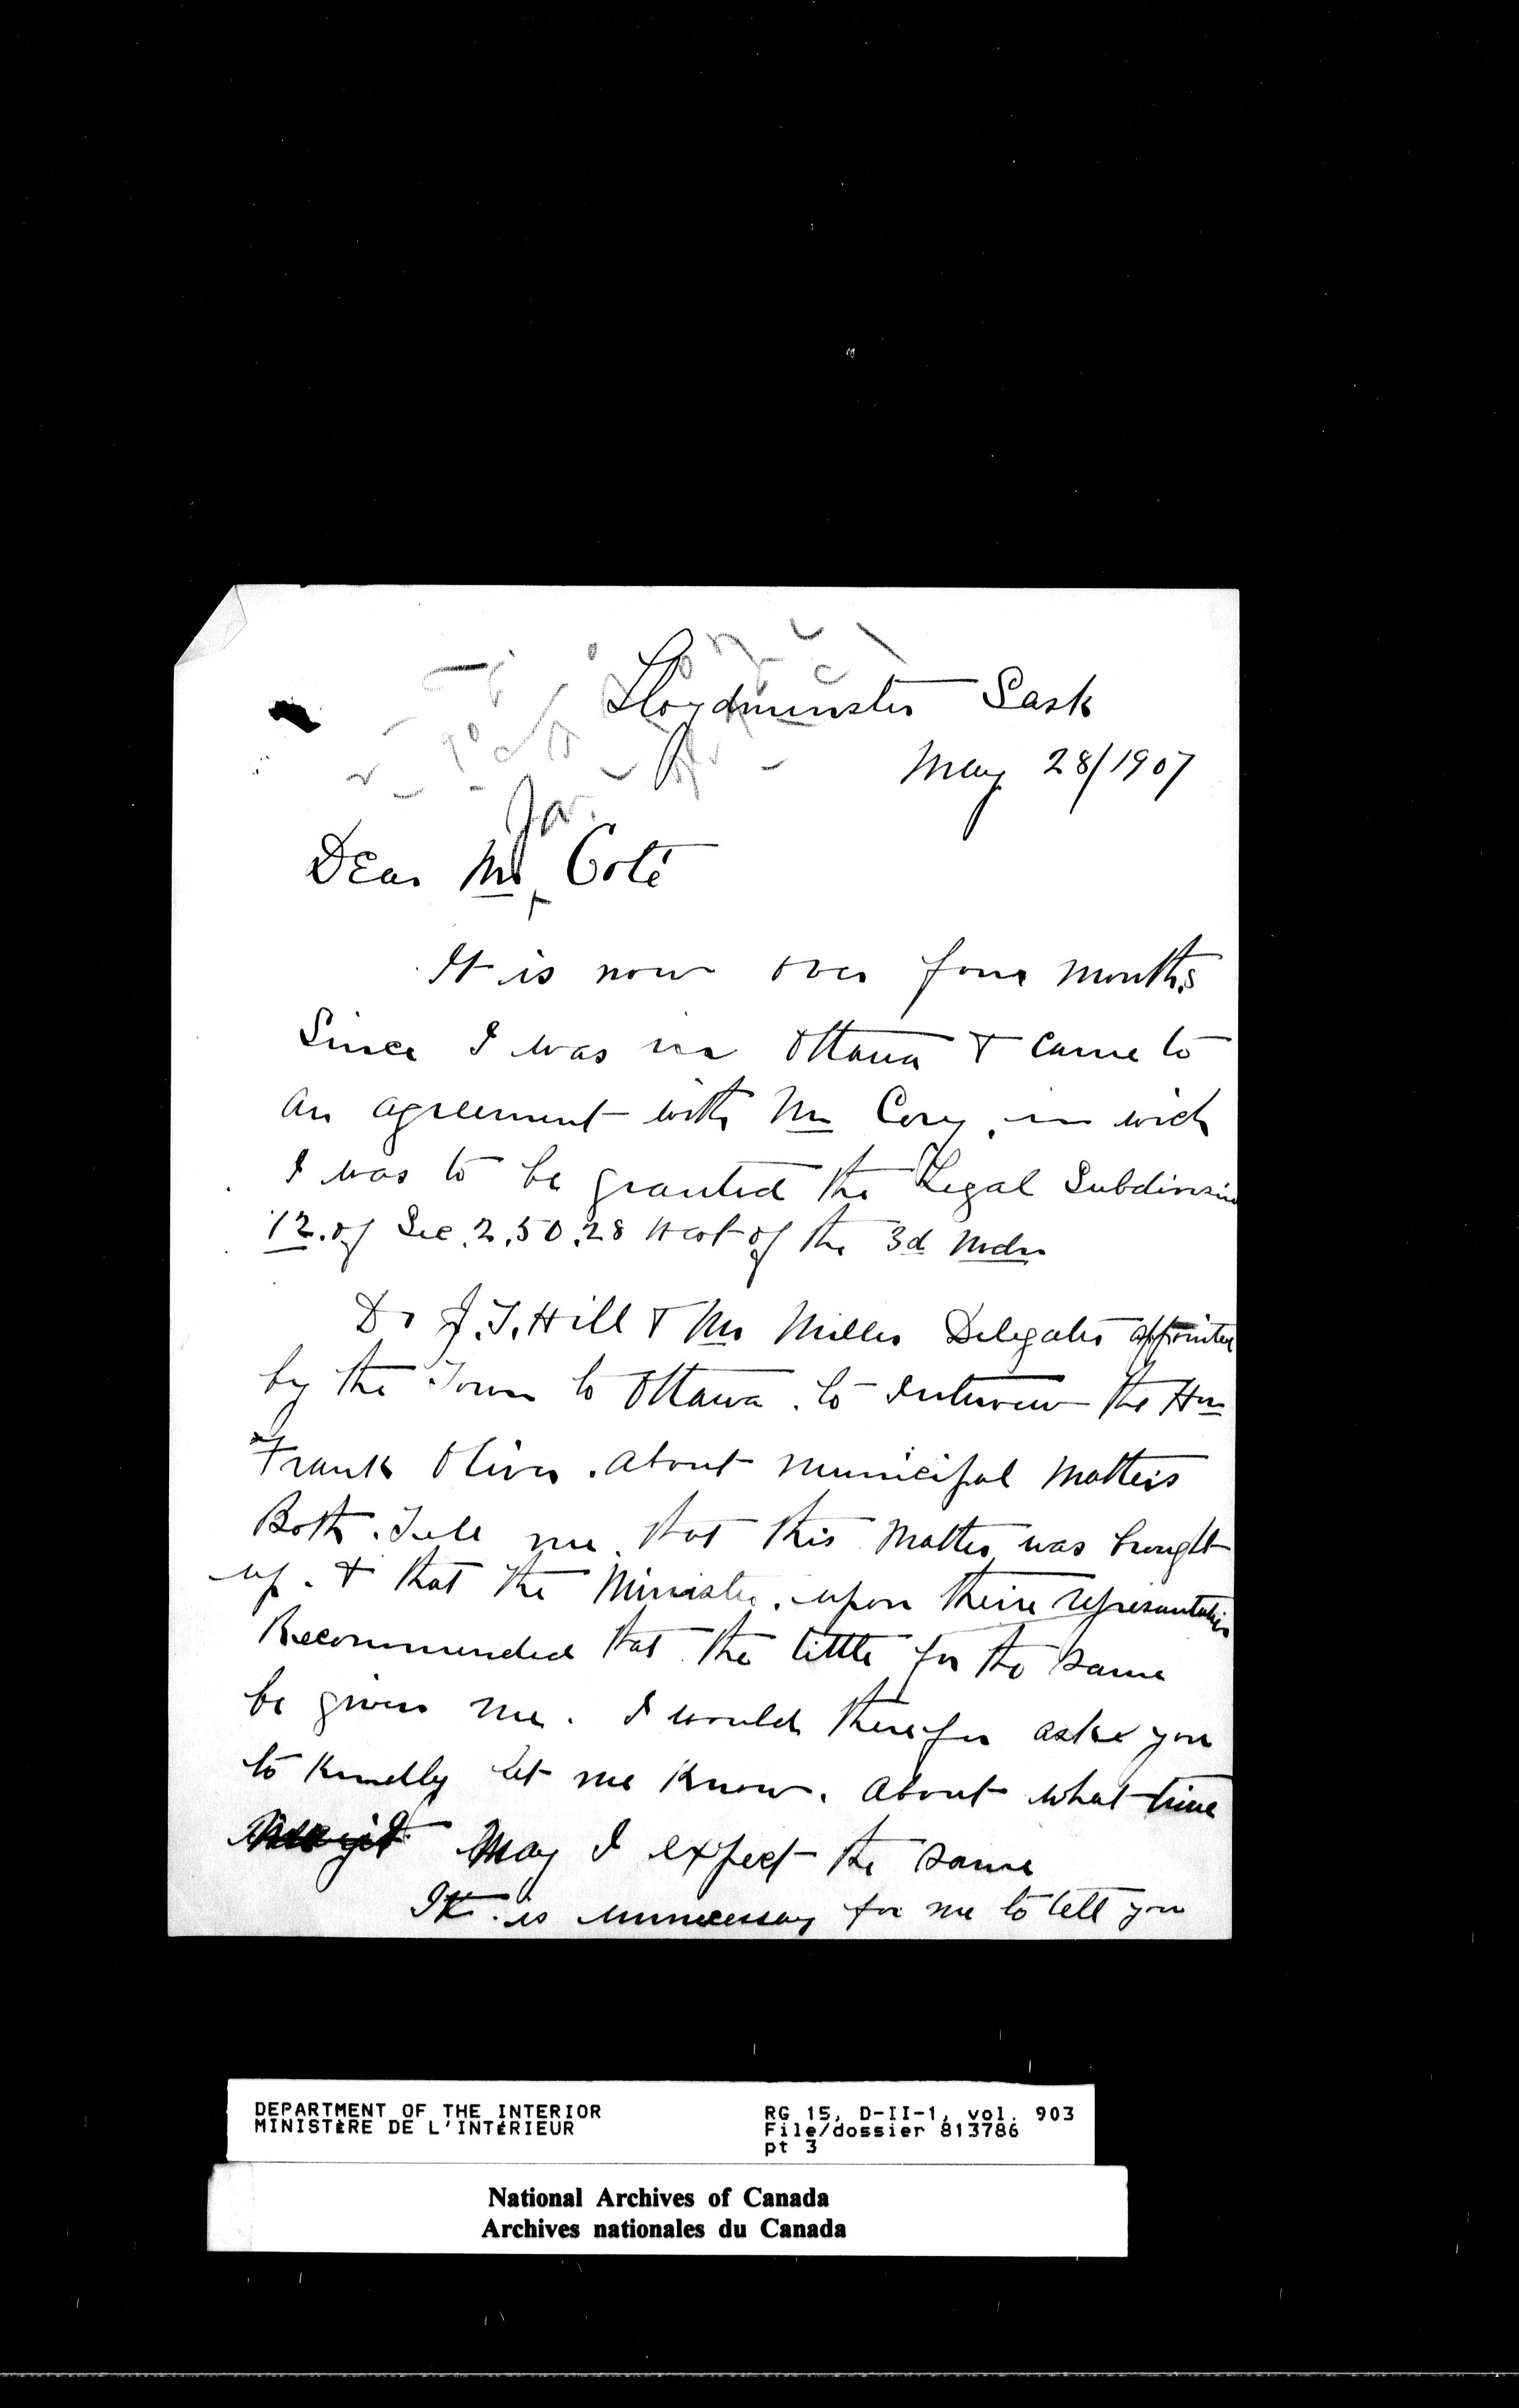 Lloydminster Sask
May 28/1907
Dear Mr Coté
It is now over four months
Since I was in Ottawa & came to
an agreement with Mr Cory, in wich
I was to be granted the Legal Subdivision
12. of Sec. 2. 50. 28 West of the 3d Mdn
Dr J. T. Hill & Mr Miller Delegates appointed
by the Town to Ottawa. to Interview the Hon
Frank Oliver. About municipal Matters
Both. Tell me. that this Matter was brought
up. & that the Minister. upon theire representation
Recommended that the tittle for the same
be given me. I would therefor aske you
to Kindly let me Know. About what time
May I expect the same
It is unnecessary for me to tell you
DEPARTMENT OF THE INTERIOR
MINISTÈRE DE L'INTÉRIEUR
RG 15, D-II-1, vol. 903
File/dossier 813786
pt 3
National Archives of Canada
Archives nationales du Canada